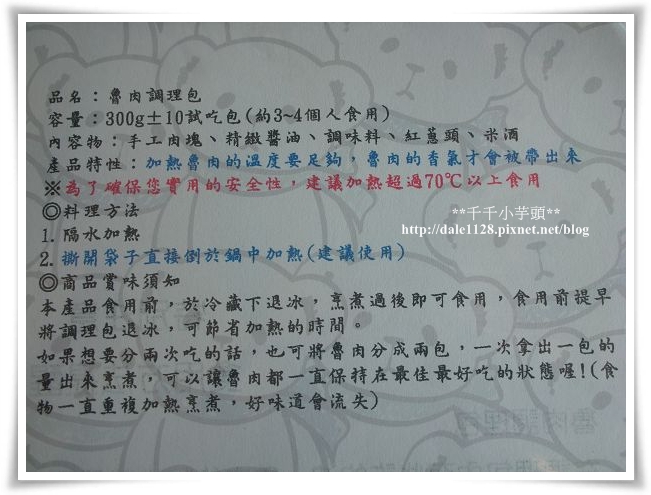 品名：魯肉調理包
容量：300g±10試吃包(約3~4個人食用)
內容物：手工肉塊、精緻醬油、調味料、紅蔥頭、米酒
產品特性：加熱魯肉的溫度要足夠，魯肉的香氣才會被帶出來
※為了確保您實用的安全性，建議加熱超過70℃以上食用
◎料理方法
1. 隔水加熱
2. 撕開袋子直接倒於鍋中加熱(建議使用)
**千千小芋頭**
http://dale1128.pixnet.net/blog
◎商品賞味須知
本產品食用前，於冷藏下退冰，烹煮過後即可食用，食用前提早
將調理包退冰，可節省加熱的時間。
如果想要分兩次吃的話，也可將魯肉分成兩包，一次拿出一包的
量出來烹煮，可以讓魯肉都一直保持在最佳最好吃的狀態喔!(食
物一直重複加熱烹煮，好味道會流失)